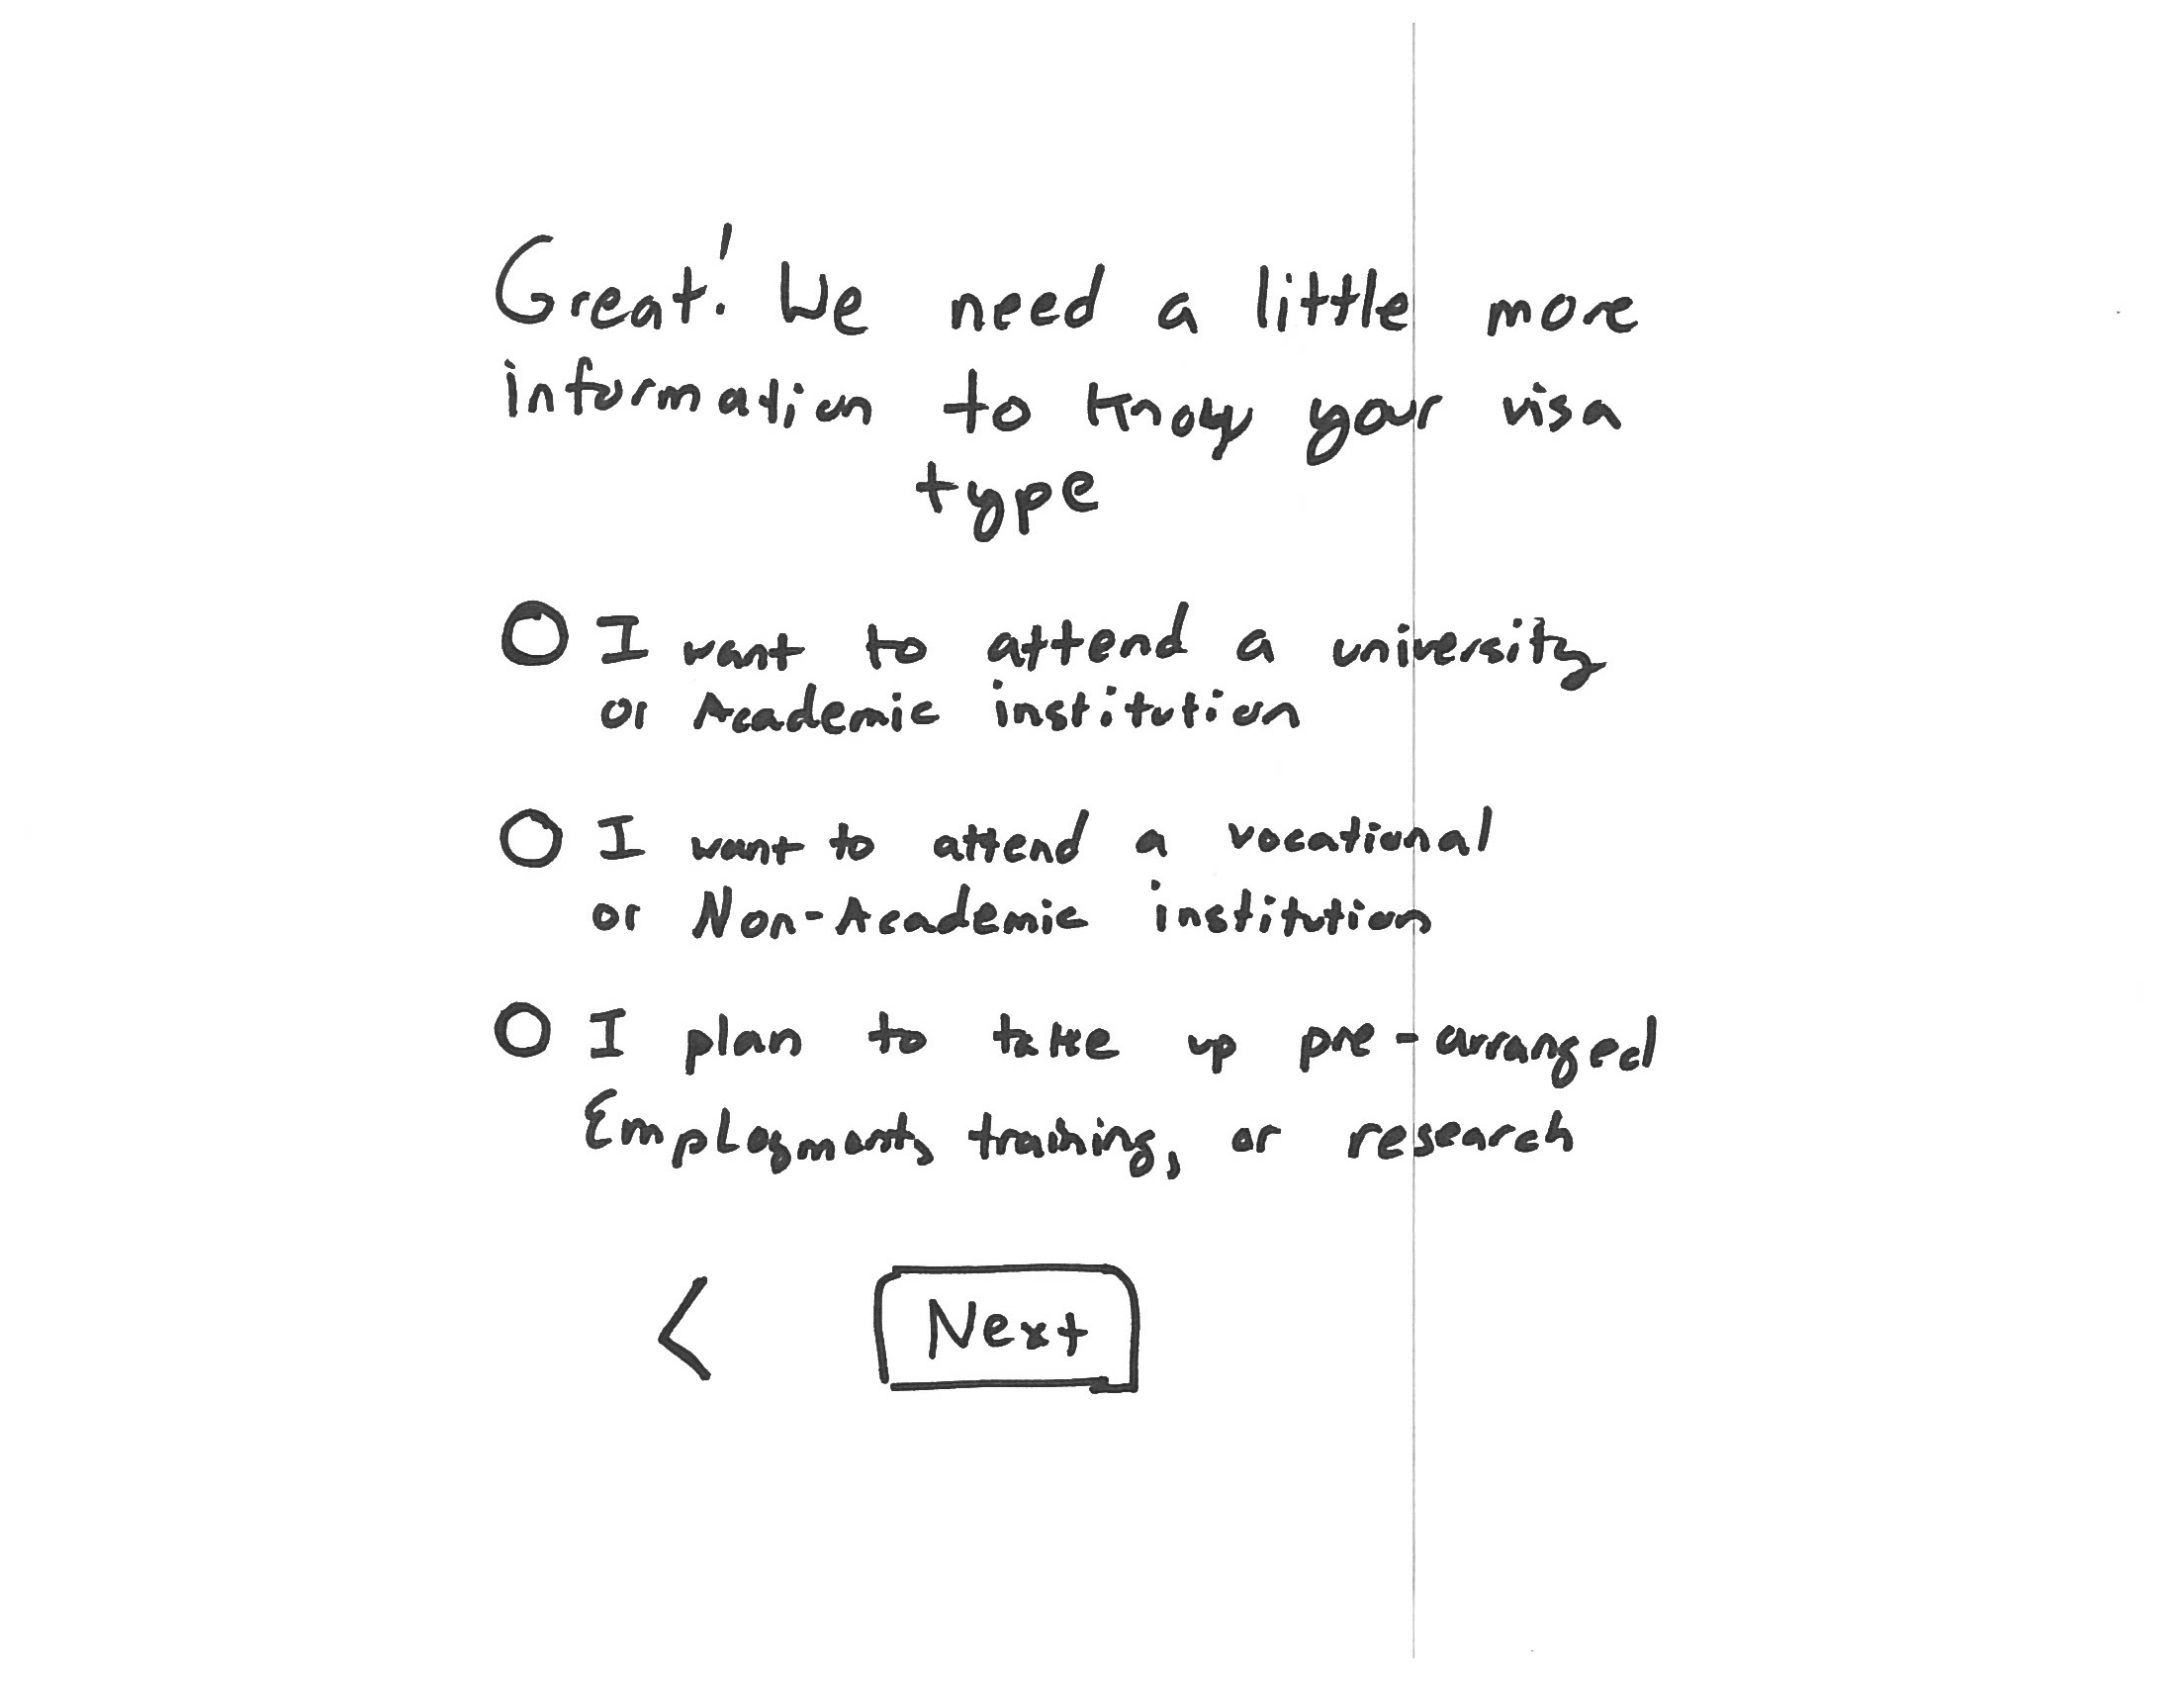 Great! We need a little more
information to know your visa
type
I want to attend a university
or Academic institution
I want to attend a vocational
or Non-Academic institution
I plan to take up pre-arranged
Employment, training, or research
< Next